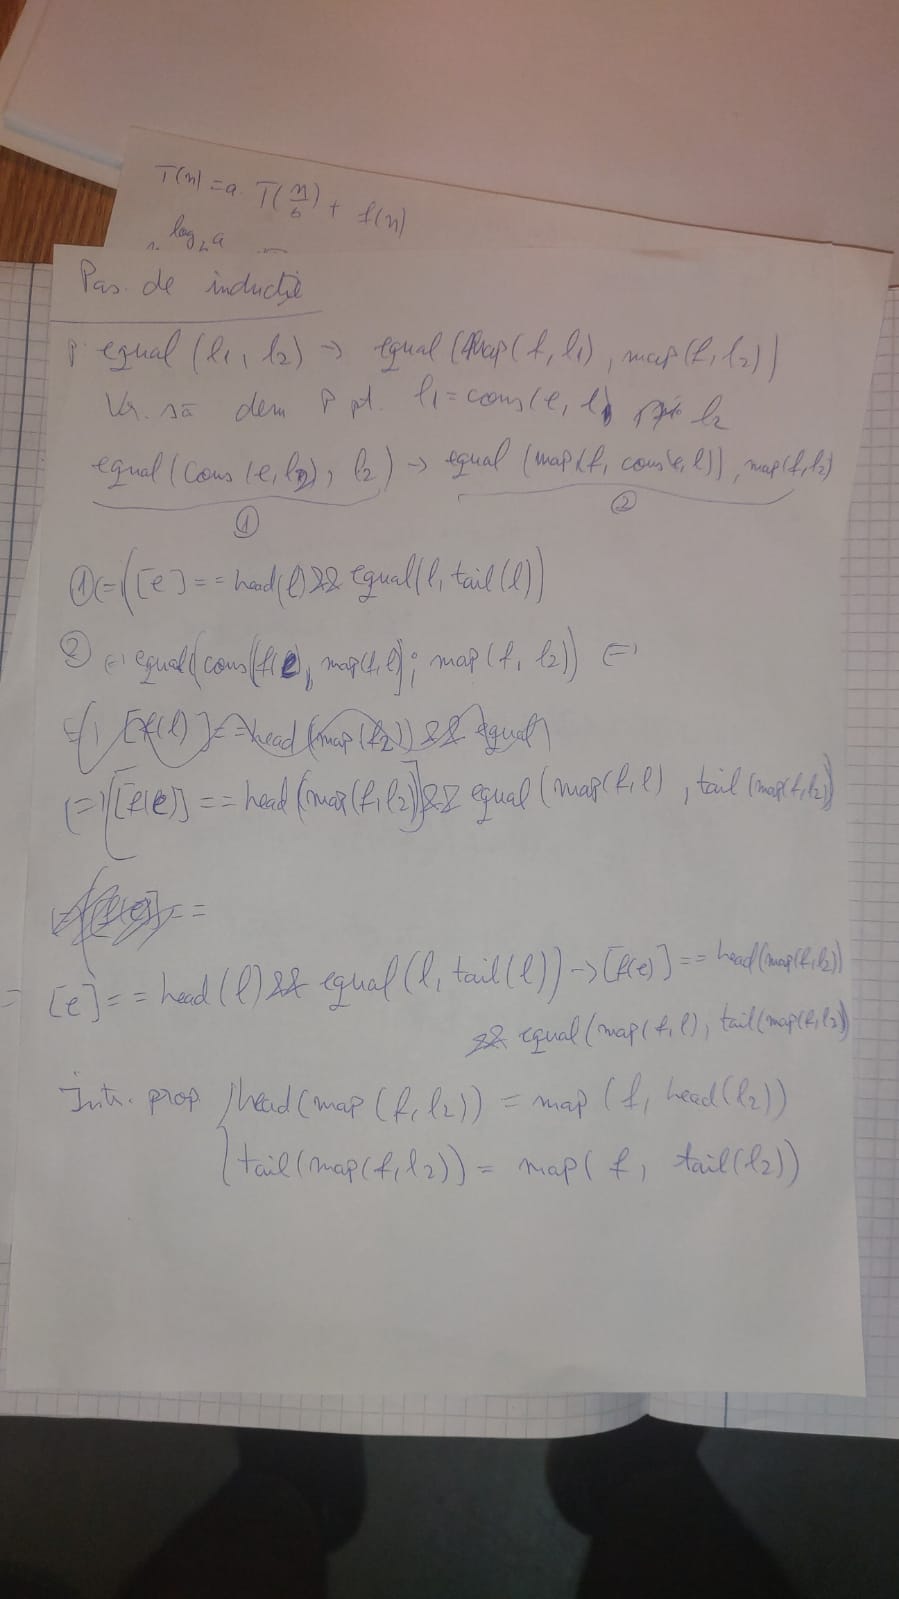 T(n) = a · T(n/b) + f(n)
log_b a
Pas de inducție
P equal (l1, l2) → equal (map(f, l1), map(f, l2))
Vr. să dem P pt. l1 = cons(e, l) l2
equal (cons (e, l), l2) → equal (map(f, cons(e, l)), map(f, l2))
① ②
① ⇔ ([e] == head(l) && equal(l, tail(l))
② ⇔ equal(cons(f(e), map(f, l); map(f, l2)) ⇔
⇔ [f(l)] == head (map(l2)) && equal
⇔ [f(e)] == head (map(f, l2)) && equal (map(f, l), tail (map(f, l2))
[f(e)] ==
= [e] == head (l) && equal (l, tail(l)) → [f(e)] == head(map(f, l2))
&& equal (map(f, l), tail(map(f, l2))
Intr. prop { head (map (f, l2)) = map (f, head(l2))
tail (map(f, l2)) = map( f, tail(l2))